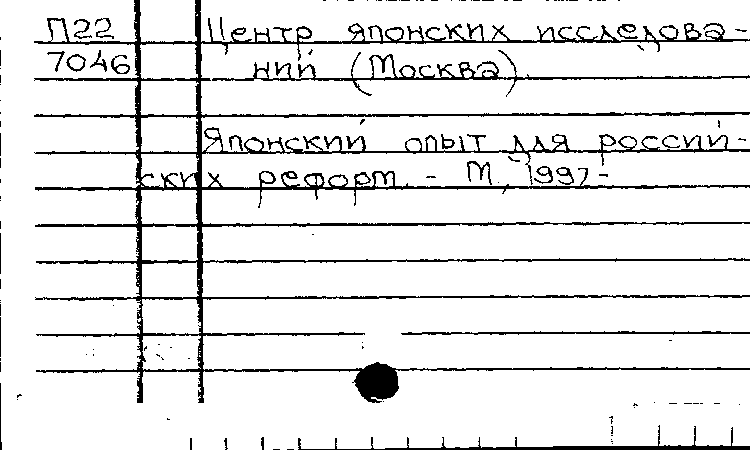 П22 Центр японских исследова-
7046 ний (Москва).
Японский опыт для россий-
ских реформ. - М., 1997-